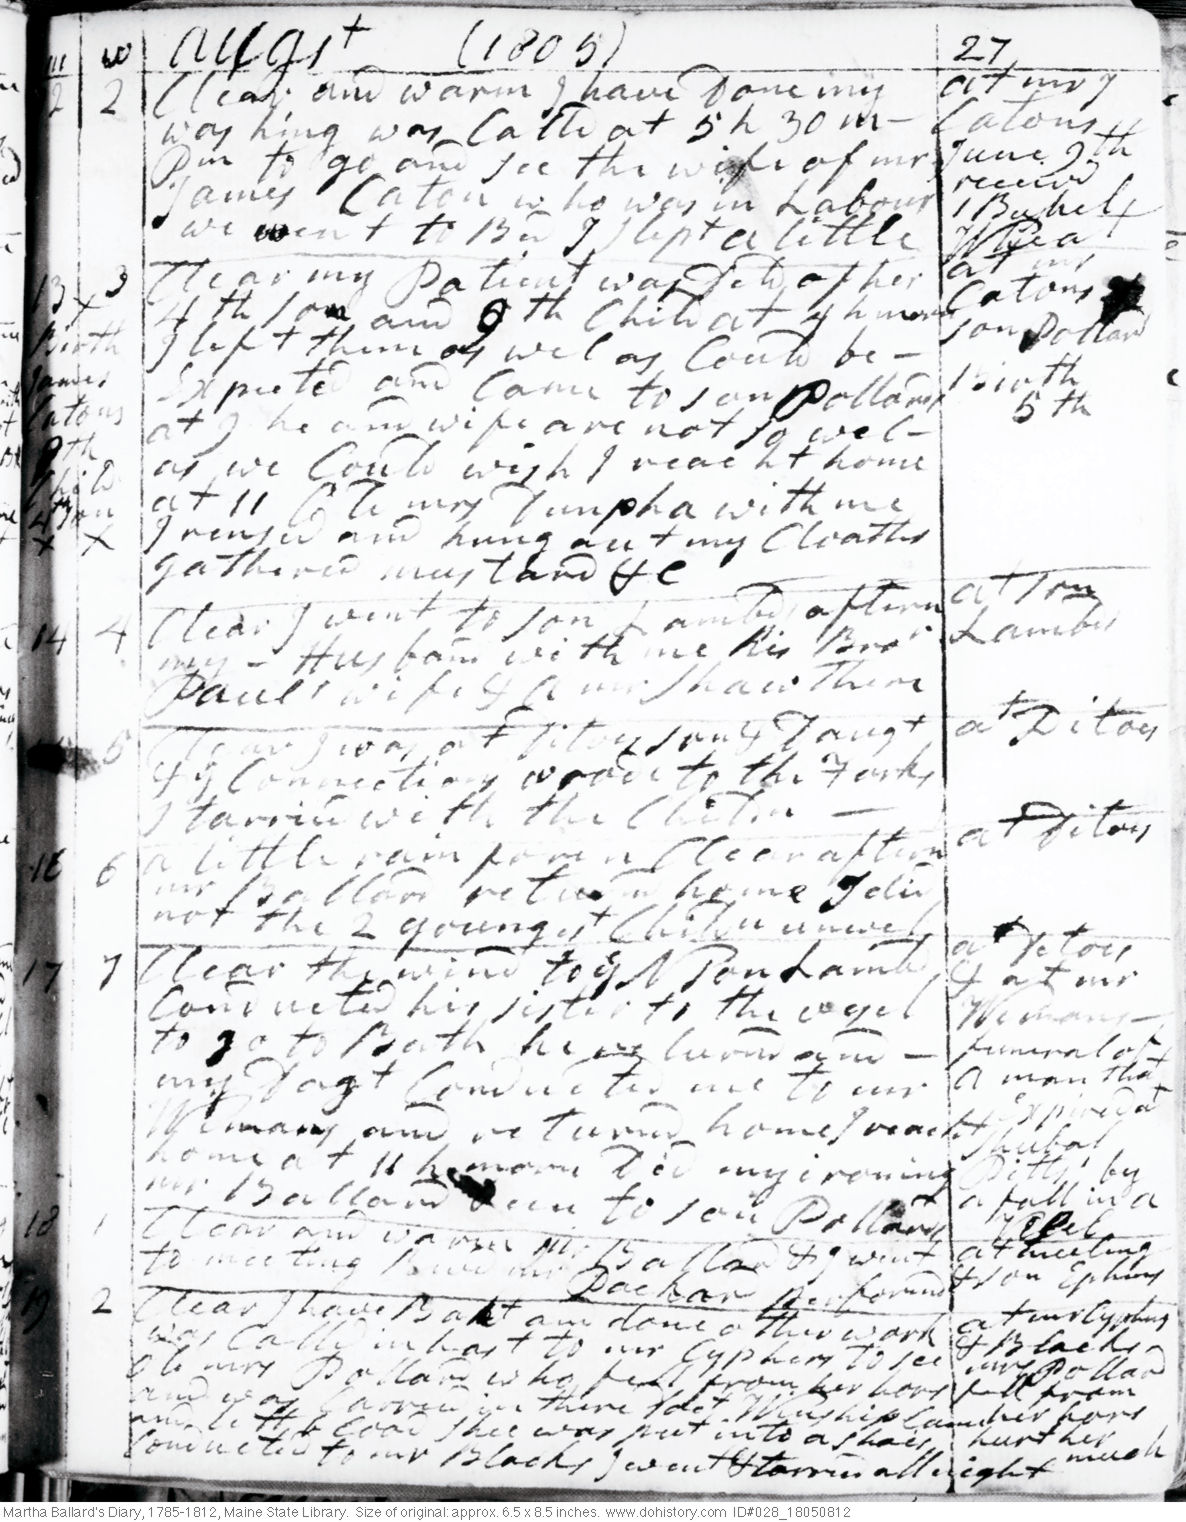 m w Augst (1805) 27
12 2 Clear and warm I have Done my
washing was Calld at 5 h 30 m -
Pm to go and see the wife of mr
James Caton who was in Labour
we went to Bed I slept a little
at mr J
Catons
June 9th
receivd
1 Bushel
Wheat
13 x 3 Clear my Patient was Deld of her
4th son and 9th Child at 4 h morn
I left them as wel as Could be -
Expected and Came to son Pollards
at 9 he and wife are not so wel -
as we Could wish I reacht home
at 11 old mrs Dunpha with me
I rensd and hung out my Cloaths
gathered mustard &C
Birth
James
Catons
9th
Child
4th son
x x
at mr
Catons
son Pollard
Birth
5th
14 4 Clear I went to son Lambds aftern
my - Husband with me his Bror
Pauls wife & a mr Shaw there
at son
Lambds
5 Clear I was at Ditoes son & Daugt
& Connections wrode to the Forks
I tarried with the Childn -
at Ditoes
16 6 a little rain foren Clear aftern
mr Ballard returnd home I did
not the 2 youngest Childn unwel
at Ditoes
17 7 Clear the wind to ye N son Lambd
Conducted his sister to the vesel
to go to Bath he returnd and -
my Dagt Conducted me to mr
Wimans and returnd home I reacht
home at 11 h morn Did my ironing
mr Ballard been to son Pollards
at Detoes
& at mr
Wimans -
funeral of
a man that
Expired at
Shubal
Pitts' by
a fall in a
Vesel
18 1 Clear and warm mr Ballard & I went
to meeting revd mr Packard performd
at meeting
& son Ephms
19 2 Clear I have Bakt and done other work
was Calld in hast to mr Cyphers to see
old mrs Pollard who fell from her hors
and was Carried in there Doct Winship Came
and let Blood shee was put into a shais
Conducted to mr Blacks I went & tarried all night
at mr Cyphers
& Blacks
mrs Pollard
fell from
her hors
hurt her
much
Martha Ballard's Diary, 1785-1812, Maine State Library. Size of original: approx. 6.5 x 8.5 inches. www.dohistory.com ID#028_18050812